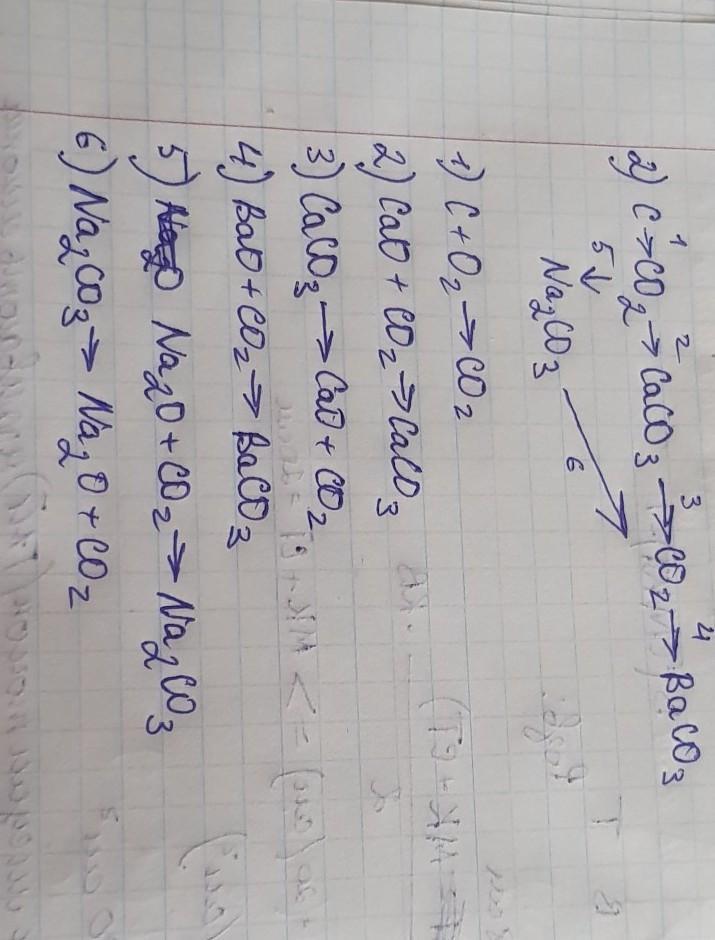 2) C →¹ CO₂ →² CaCO₃ →³ CO₂ →⁴ BaCO₃
5 ↓ 6
Na₂CO₃
1) C + O₂ → CO₂
2) CaO + CO₂ → CaCO₃
3) CaCO₃ → CaO + CO₂
4) BaO + CO₂ → BaCO₃
5) Na₂O + CO₂ → Na₂CO₃
6) Na₂CO₃ → Na₂O + CO₂